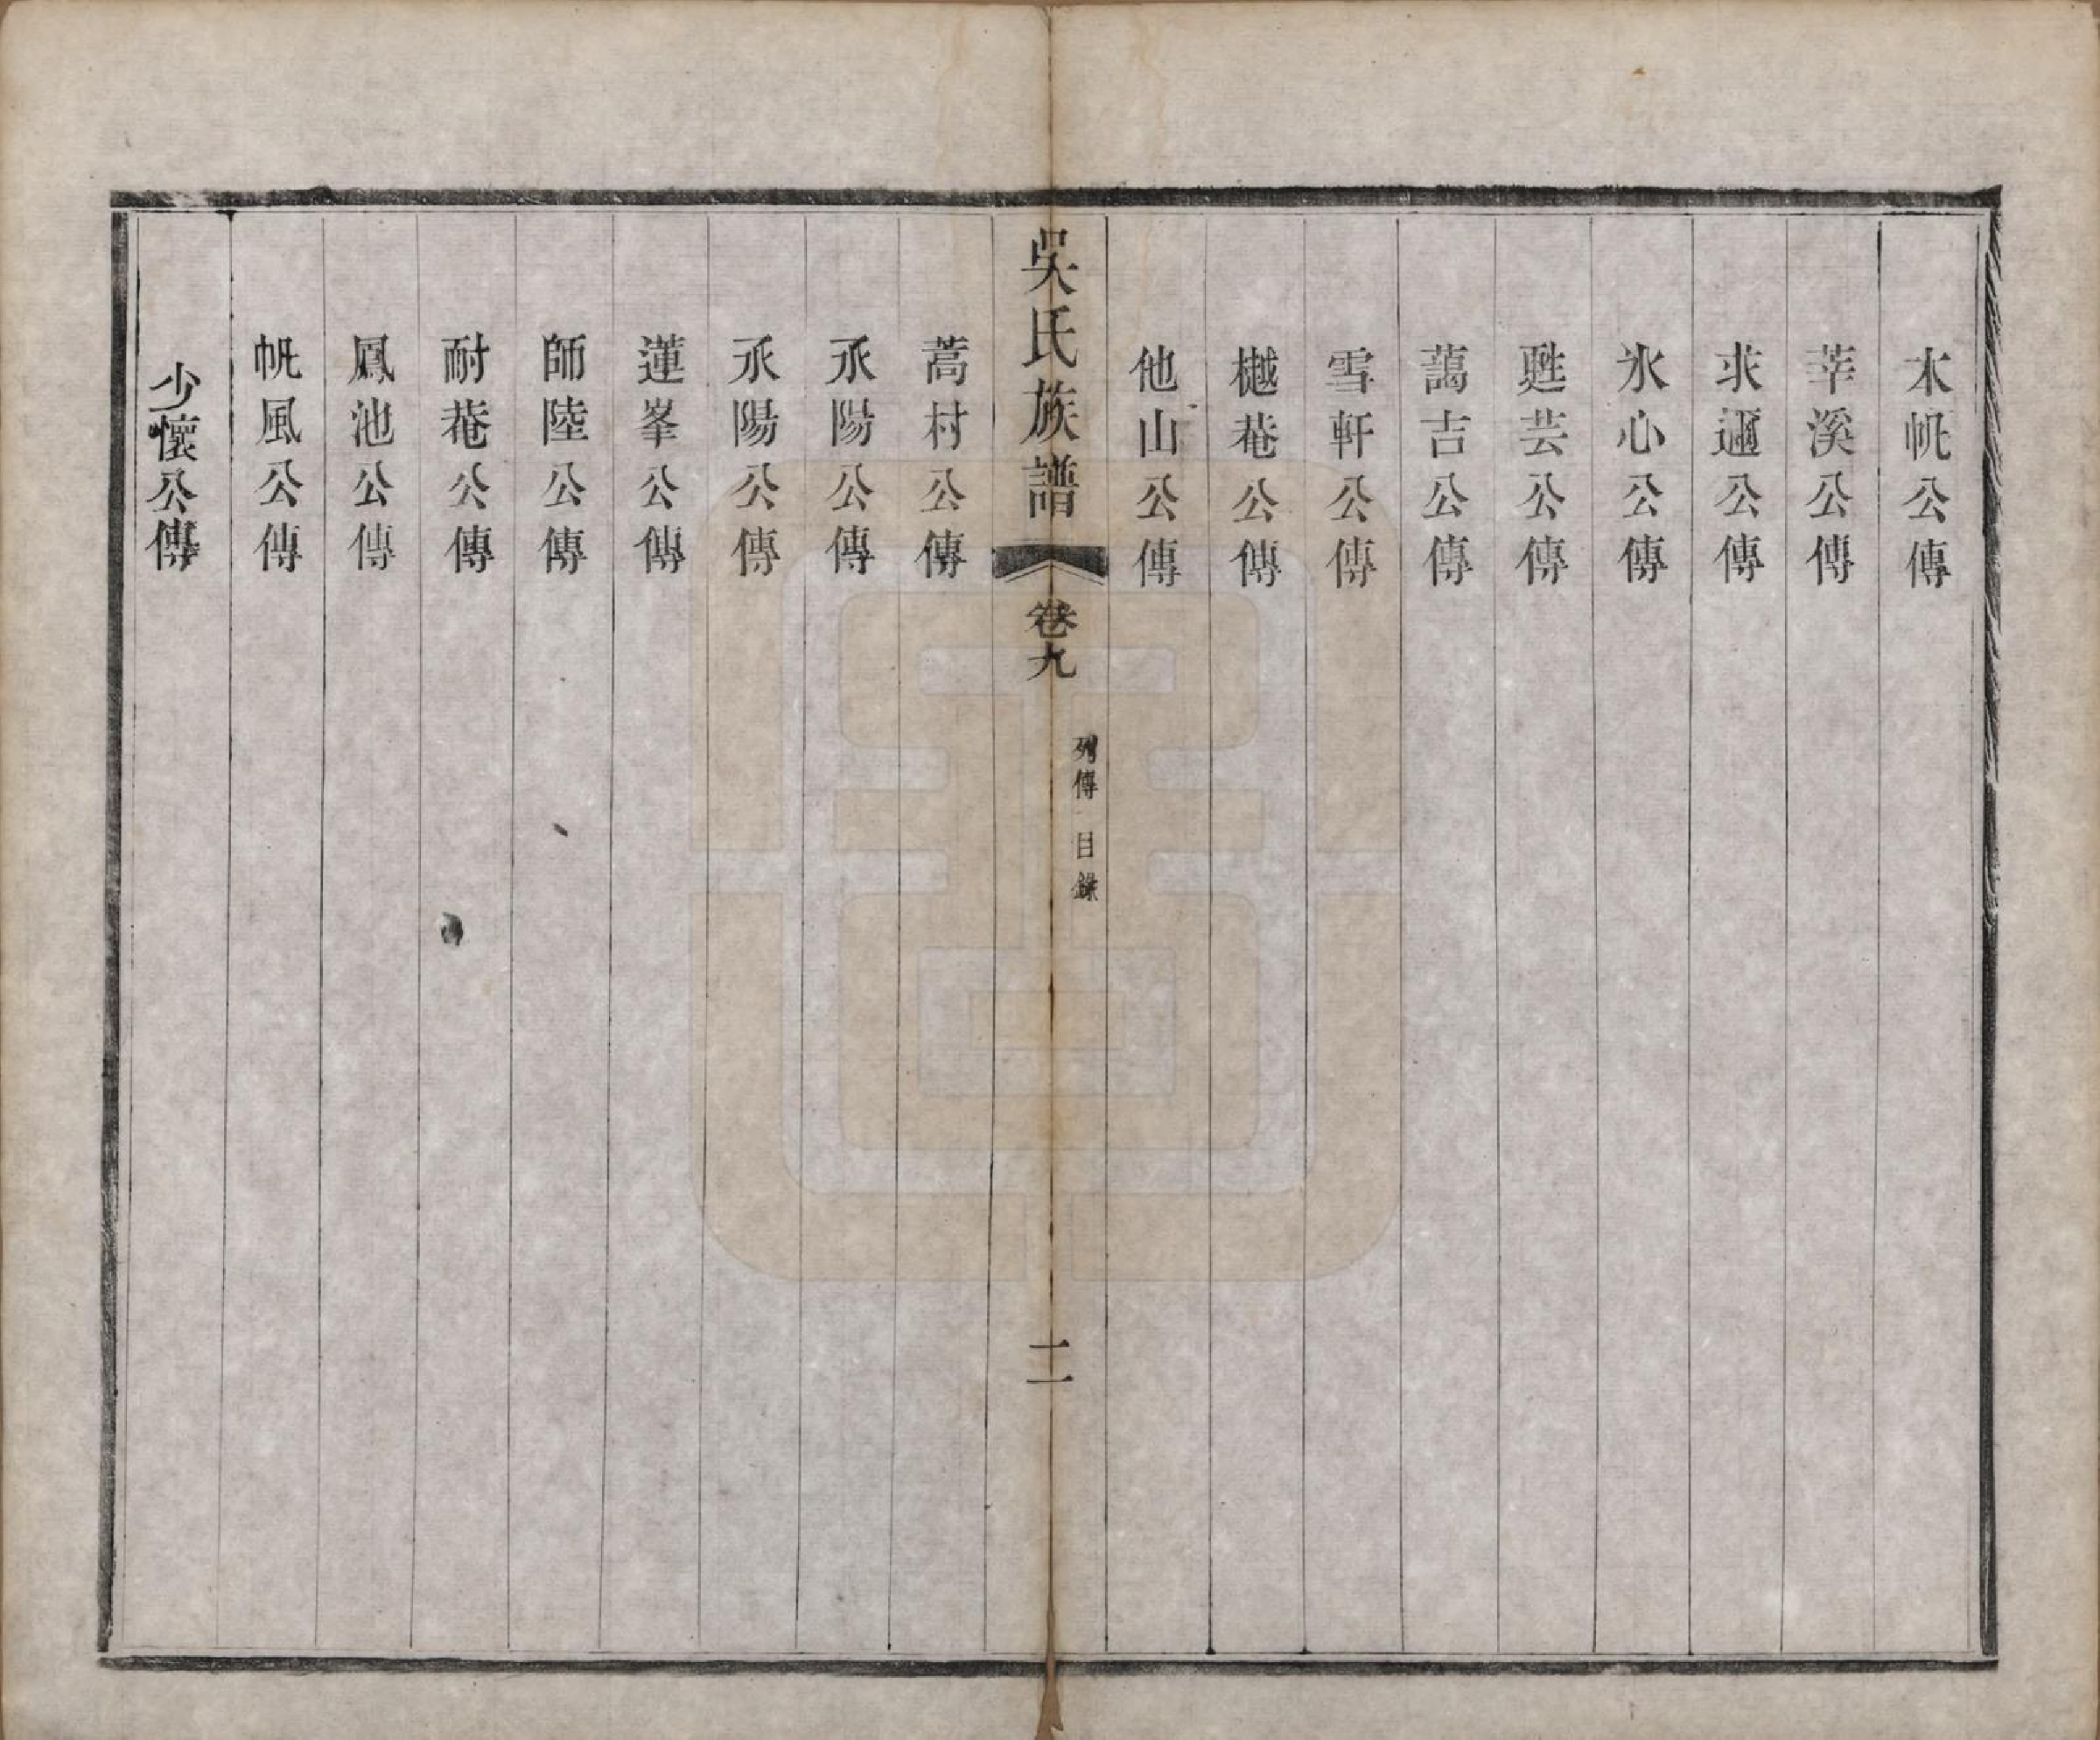 木帆公傳
莘溪公傳
求邇公傳
氷心公傳
甦芸公傳
藹吉公傳
雪軒公傳
樾菴公傳
他山公傳
吳氏族譜 卷九 列傳 目錄 二
蒿村公傳
永陽公傳
永陽公傳
蓮峯公傳
師陸公傳
耐菴公傳
鳳池公傳
帆風公傳
少懷公傳